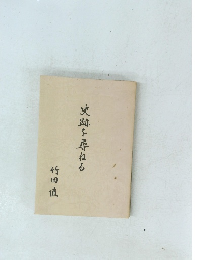 史跡を尋ねる
竹田 値